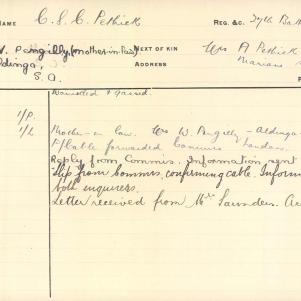 NAME C. S. C. Pethick REG. &C. 27th Bat
W. Pengilly (mother-in-law) NEXT OF KIN Mrs A Pethick
Aldinga, ADDRESS Marian
S.A.
Wounded & Gassed.
Brother-in-law. Mrs W. Pengilly - Aldinga
Cable forwarded Commrs London
Reply from Commis. Information sent
Slip from Commis. confirming cable. Inform
both inquirers.
Letter received from Mrs Saunders.